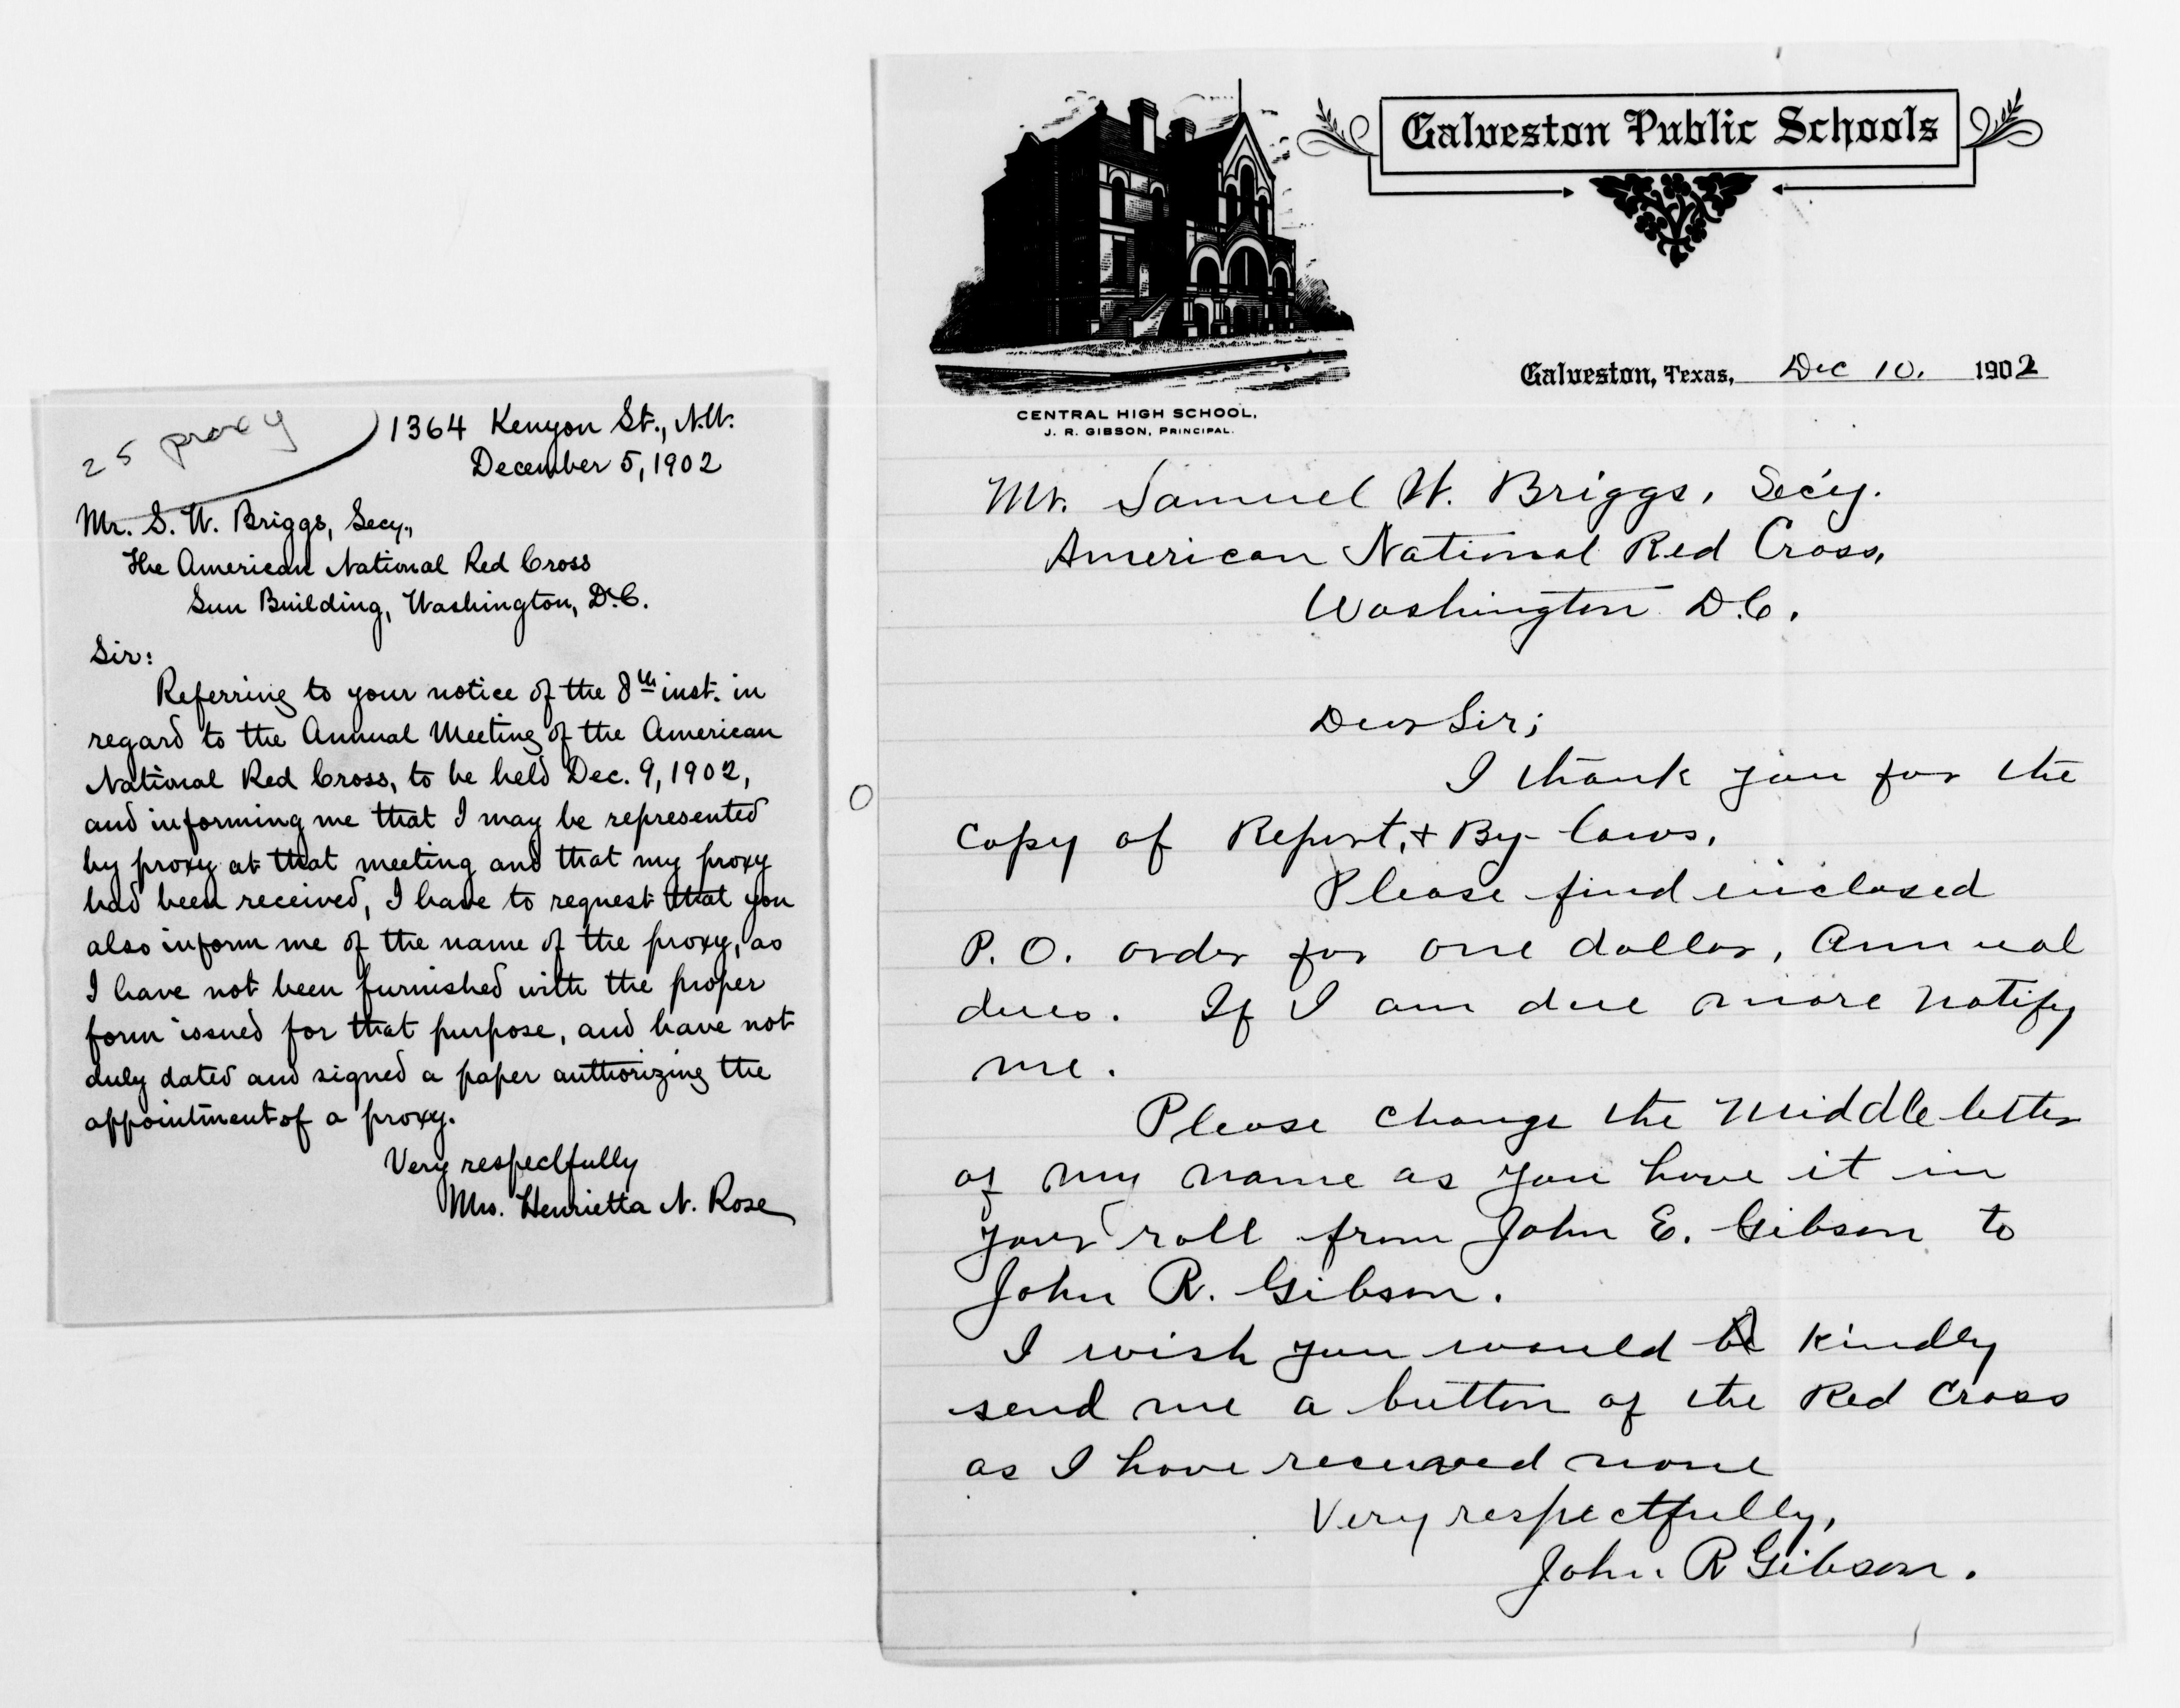 25 proxy
1364 Kenyon St., N.W.
December 5, 1902
Mr. S. W. Briggs, Secy.,
The American National Red Cross
Sun Building, Washington, D.C.
Sir:
Referring to your notice of the 8th inst. in
regard to the Annual Meeting of the American
National Red Cross, to be held Dec. 9, 1902,
and informing me that I may be represented
by proxy at that meeting and that my proxy
had been received, I have to request that you
also inform me of the name of the proxy, as
I have not been furnished with the proper
form issued for that purpose, and have not
duly dated and signed a paper authorizing the
appointment of a proxy.
Very respectfully
Mrs. Henrietta N. Rose
Galveston Public Schools
CENTRAL HIGH SCHOOL,
J. R. GIBSON, PRINCIPAL.
Galveston, Texas, Dec 10. 1902
Mr. Samuel W. Briggs, Sec'y.
American National Red Cross,
Washington D.C.
Dear Sir;
I thank you for the
copy of Report, & By-laws.
Please find inclosed
P.O. order for one dollar, Annual
dues. If I am due more notify
me.
Please change the middle letter
of my name as you have it in
your roll from John E. Gibson to
John R. Gibson.
I wish you would kindly
send me a button of the Red Cross
as I have received none
Very respectfully,
John R Gibson.